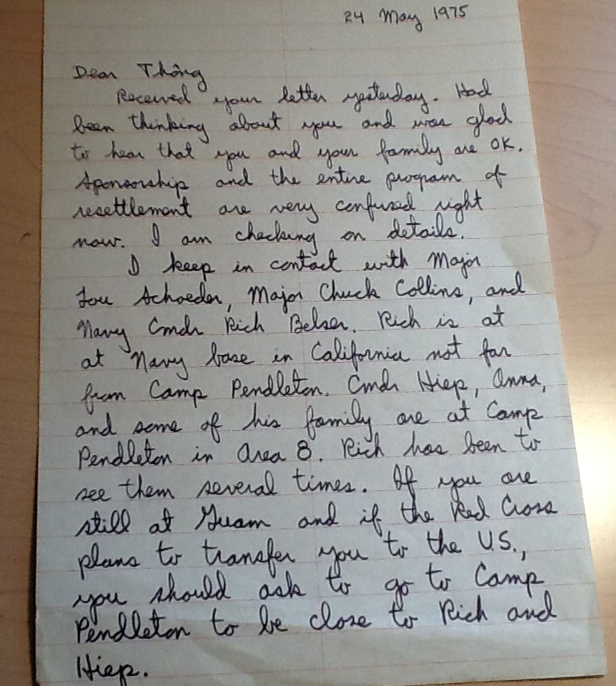 24 May 1975
Dear Thông
Received your letter yesterday. Had
been thinking about you and was glad
to hear that you and your family are OK.
Sponsorship and the entire program of
resettlement are very confused right
now. I am checking on details.
I keep in contact with Major
Lou Schoeder, Major Chuck Collins, and
Navy Cmdr Rich Belser. Rich is at
at Navy base in California not far
from Camp Pendleton. Cmdr Hiep, Anna,
and some of his family are at Camp
Pendleton in Area 8. Rich has been to
see them several times. If you are
still at Guam and if the Red Cross
plans to transfer you to the U.S.,
you should ask to go to Camp
Pendleton to be close to Rich and
Hiep.